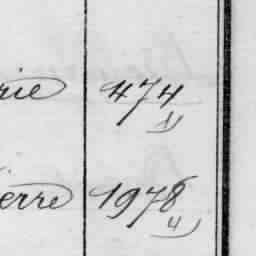 rie 474
1)
ierre 1978
4)